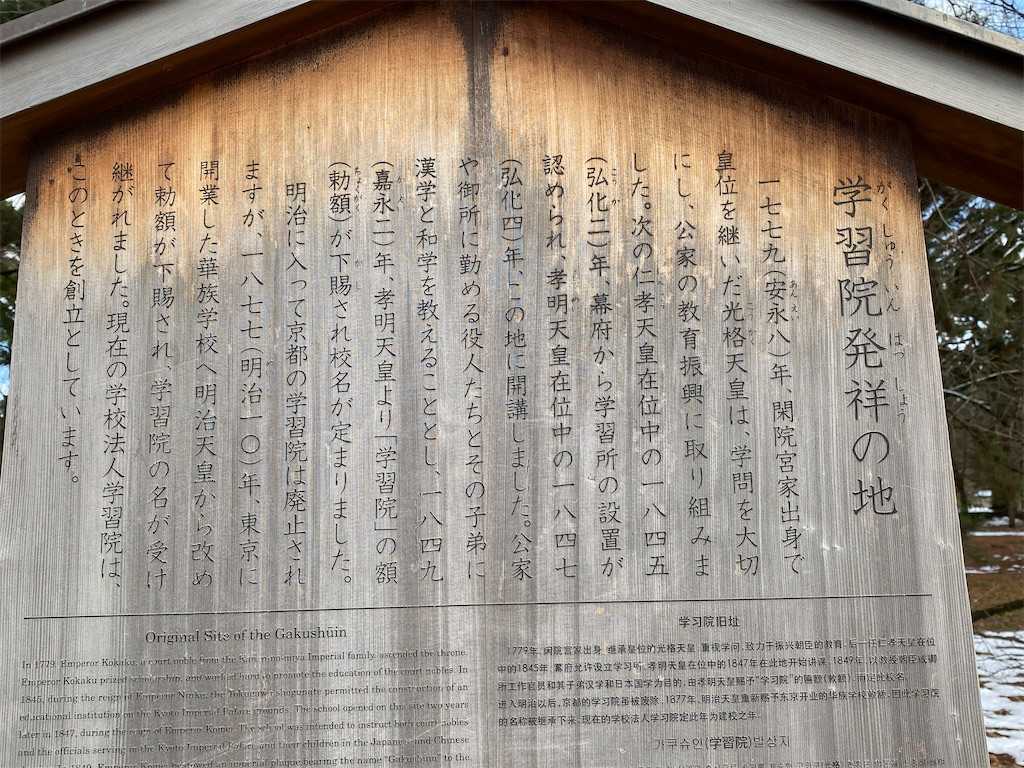 学習院発祥の地
がくしゅういん はっしょう
一七七九(安永八)年、閑院宮家出身で
あんえい
皇位を継いだ光格天皇は、学問を大切
こうかく
にし、公家の教育振興に取り組みま
した。次の仁孝天皇在位中の一八四五
(弘化二)年、幕府から学習所の設置が
こうか
認められ、孝明天皇在位中の一八四七
(弘化四)年、この地に開講しました。公家
や御所に勤める役人たちとその子弟に
漢学と和学を教えることとし、一八四九
(嘉永二)年、孝明天皇より「学習院」の額
かえい
(勅額)が下賜され校名が定まりました。
ちょくがく かし
明治に入って京都の学習院は廃止され
ますが、一八七七(明治一〇)年、東京に
開業した華族学校へ明治天皇から改め
て勅額が下賜され、学習院の名が受け
継がれました。現在の学校法人学習院は、
このときを創立としています。
Original Site of the Gakushūin
In 1779, Emperor Kokaku, a court noble from the Kan-in-no-miya Imperial family, ascended the throne.
Emperor Kokaku prized scholarship, and worked hard to promote the education of the court nobles. In
1845, during the reign of Emperor Ninko, the Tokugawa Shogunate permitted the construction of an
educational institution on the Kyoto Imperial Palace grounds. The school opened on this site two years
later in 1847, during the reign of Emperor Komei. The school was intended to instruct both court nobles
and the officials serving in the Kyoto Imperial Palace and their children in the Japanese and Chinese
In 1849, Emperor Komei bestowed an imperial plaque bearing the name "Gakushuin" to the
学习院旧址
1779年,闲院宫家出身、继承皇位的光格天皇,重视学问,致力于振兴朝臣的教育,后一任仁孝天皇在位
中的1845年,幕府允许设立学习所,孝明天皇在位中的1847年在此地开始讲课,1849年,以教授朝臣或御
所工作官员和其子弟汉学和日本国学为目的,由孝明天皇赐予“学习院”的匾额(敕额),而定此校名。
进入明治以后,京都的学习院虽被废除,1877年,明治天皇重新赐予东京开业的华族学校敕额,因此学习院
的名称被继承下来,现在的学校法人学习院定此年为建校之年。
가쿠슈인(学習院)발상지